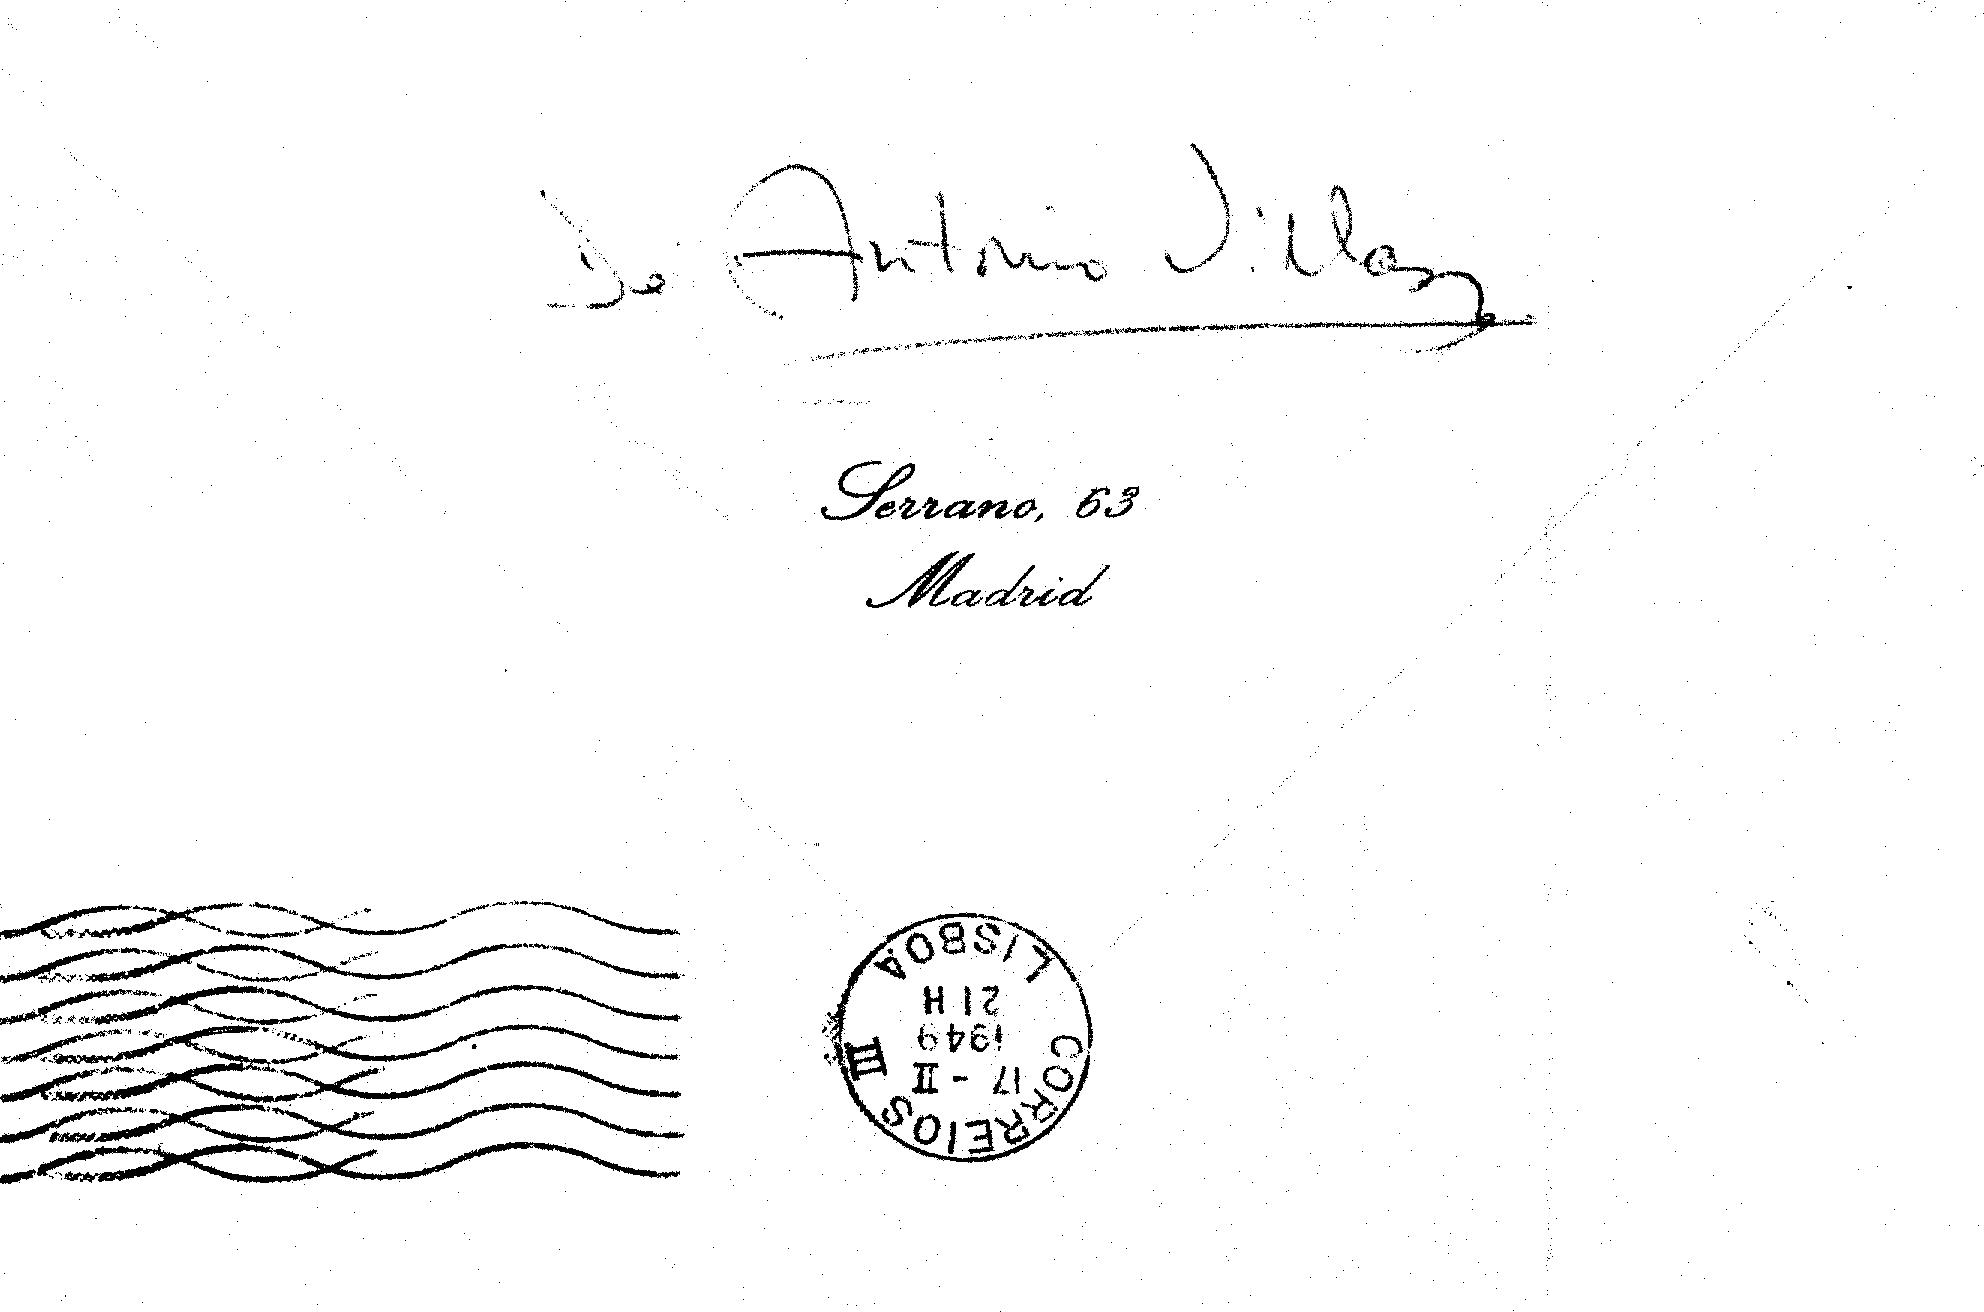 De Antonio Villar
Serrano, 63
Madrid
LISBOA
21 H
1949
17 - II
CORREIOS III